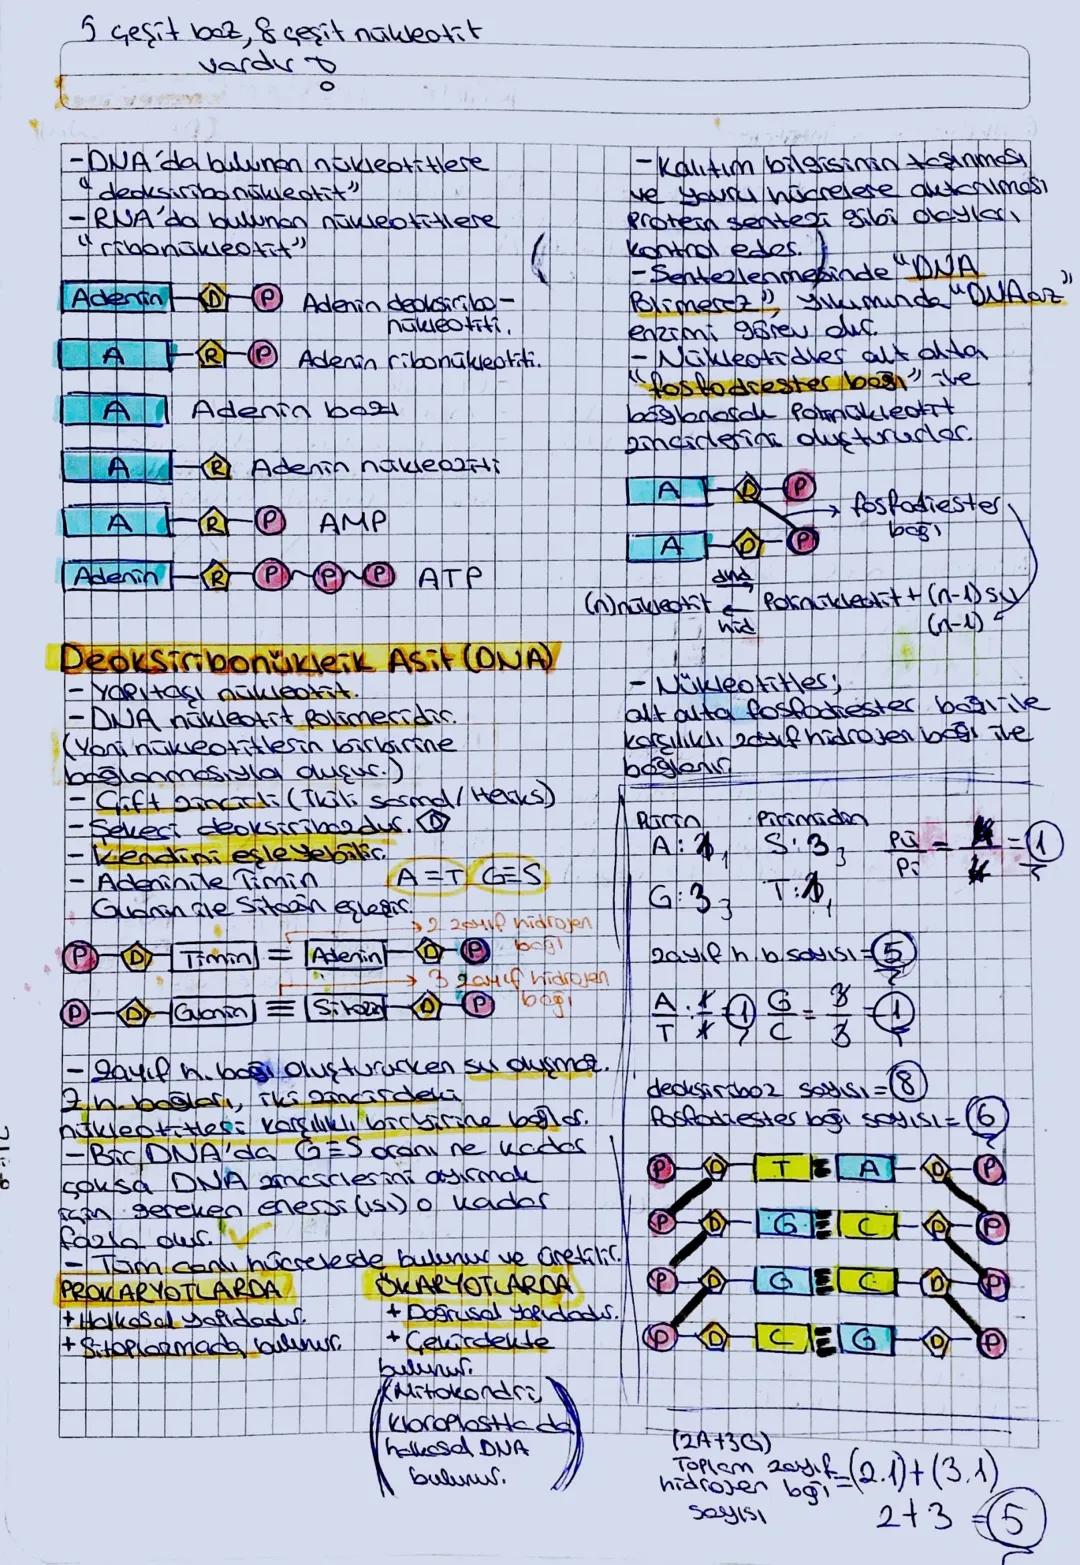 5 çeşit baz, 8 çeşit nükleotit
vardır
-DNA'da bulunan nükleotitlere
"deoksiribonükleotit"
-RNA'da bulunan nükleotitlere
"ribonükleotit"
Adenin D P Adenin deoksiribo-
nükleotiti.
A R P Adenin ribonükleotiti.
A Adenin bazı
A R Adenin nükleoziti
A R P AMP
Adenin R P P P ATP
Deoksiribonükleik Asit (DNA)
- Yapıtaşı nükleotit.
-DNA nükleotit polimeridir.
(Yani nükleotitlerin birbirine
bağlanmasıyla oluşur.)
- Çift zincirli (İkili sarmal/Heliks)
-Şekeri deoksiribozdur. D
- Kendini eşleyebilir.
- Adenin ile Timin A=T G≡S
Guanin ile Sitozin eşleşir.
2 zayıf hidrojen
bağı
P D Timin = Adenin D P
3 zayıf hidrojen
bağı
P D Guanin ≡ Sitozin D P
- Zayıf h. bağı oluştururken su oluşmaz.
Z h. bağları, iki zincirdeki
nükleotitleri karşılıklı birbirine bağlar.
-Bir DNA'da G≡S oranı ne kadar
çoksa DNA zincirlerini ayırmak
için gereken enerji (ısı) o kadar
fazla olur.
- Tüm canlı hücrelerde bulunur ve üretilir.
PROKARYOTLARDA
+Halkasal yapıdadır.
+Sitoplazmada bulunur.
ÖKARYOTLARDA
+ Doğrusal yapıdadır.
+ Çekirdekte
bulunur.
(Mitokondri,
kloroplastta da
halkasal DNA
bulunur.)
-Kalıtım bilgisinin taşınması
ve yavru hücrelere aktarılması
Protein sentezi gibi olayları
kontrol eder.
-Sentezlenmesinde "DNA
Polimeraz", yıkımında "DNAaz"
enzimi görev alır.
- Nükleotidler alt alta
"fosfodiester bağı" ile
bağlanarak Polinükleotit
zincirlerini oluştururlar.
A D P
fosfodiester
bağı
A D P
(n)nükleotit dhd Polinükleotit + (n-1) su
hid (n-1)
- Nükleotitler;
alt alta fosfodiester bağı ile
karşılıklı zayıf hidrojen bağı ile
bağlanır.
Pürin Pirimidin
A: 1, S: 3 Pü/Pi = 4/4 = 1
G: 3 T: 1
zayıf h. b. sayısı = 5
A/T: 1/1 1 G/C = 3/3 = 1
deoksiriboz sayısı = 8
fosfodiester bağı sayısı = 6
P D T A D P
P D G C D P
P D G C D P
P D C G D P
(2A+3G)
Toplam zayıf
hidrojen bağı = (2.1)+(3.1)
sayısı 2+3 = 5